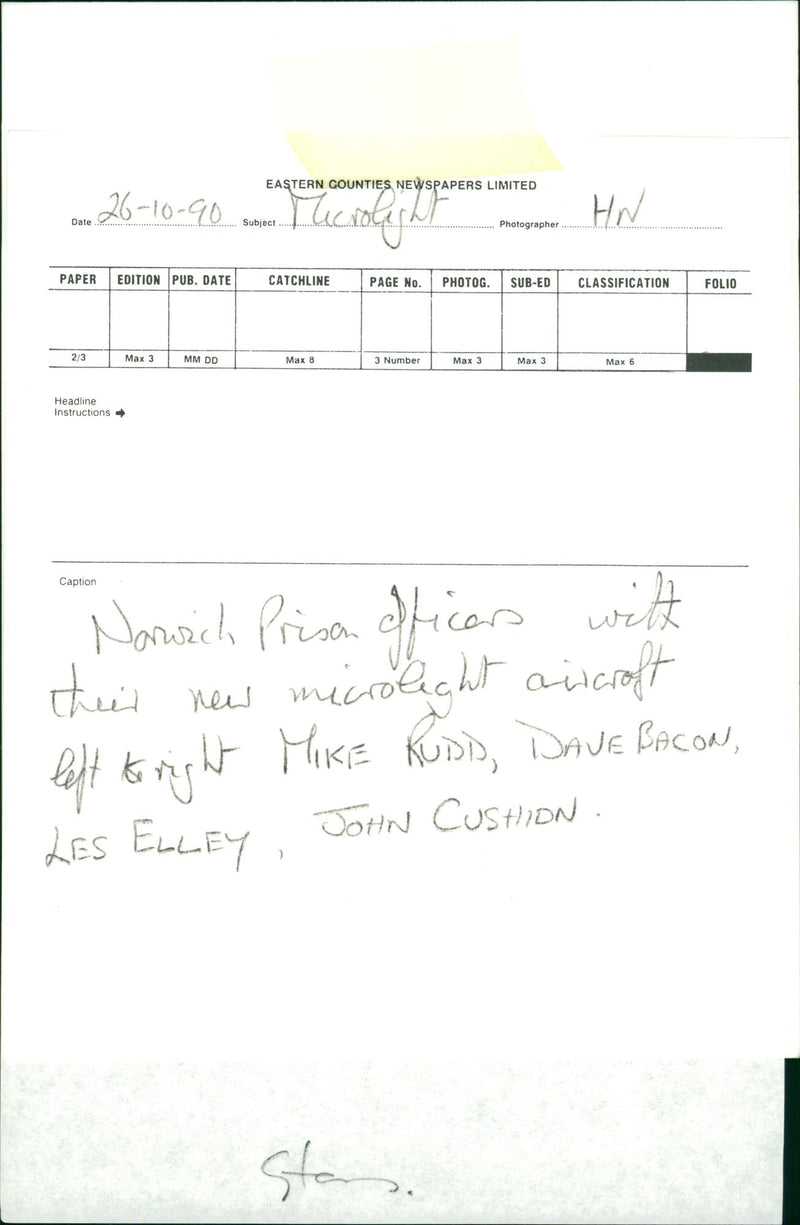 EASTERN COUNTIES NEWSPAPERS LIMITED
Date 26-10-90 Subject Microlight Photographer HN
PAPER EDITION PUB. DATE CATCHLINE PAGE No. PHOTOG. SUB-ED CLASSIFICATION FOLIO
2/3 Max 3 MM DD Max 8 3 Number Max 3 Max 3 Max 6
Headline
Instructions →
Caption
Norwich Prison officers with
their new microlight aircraft
left to right MIKE RUDD, DAVE BACON,
LES ELLEY, JOHN CUSHION.